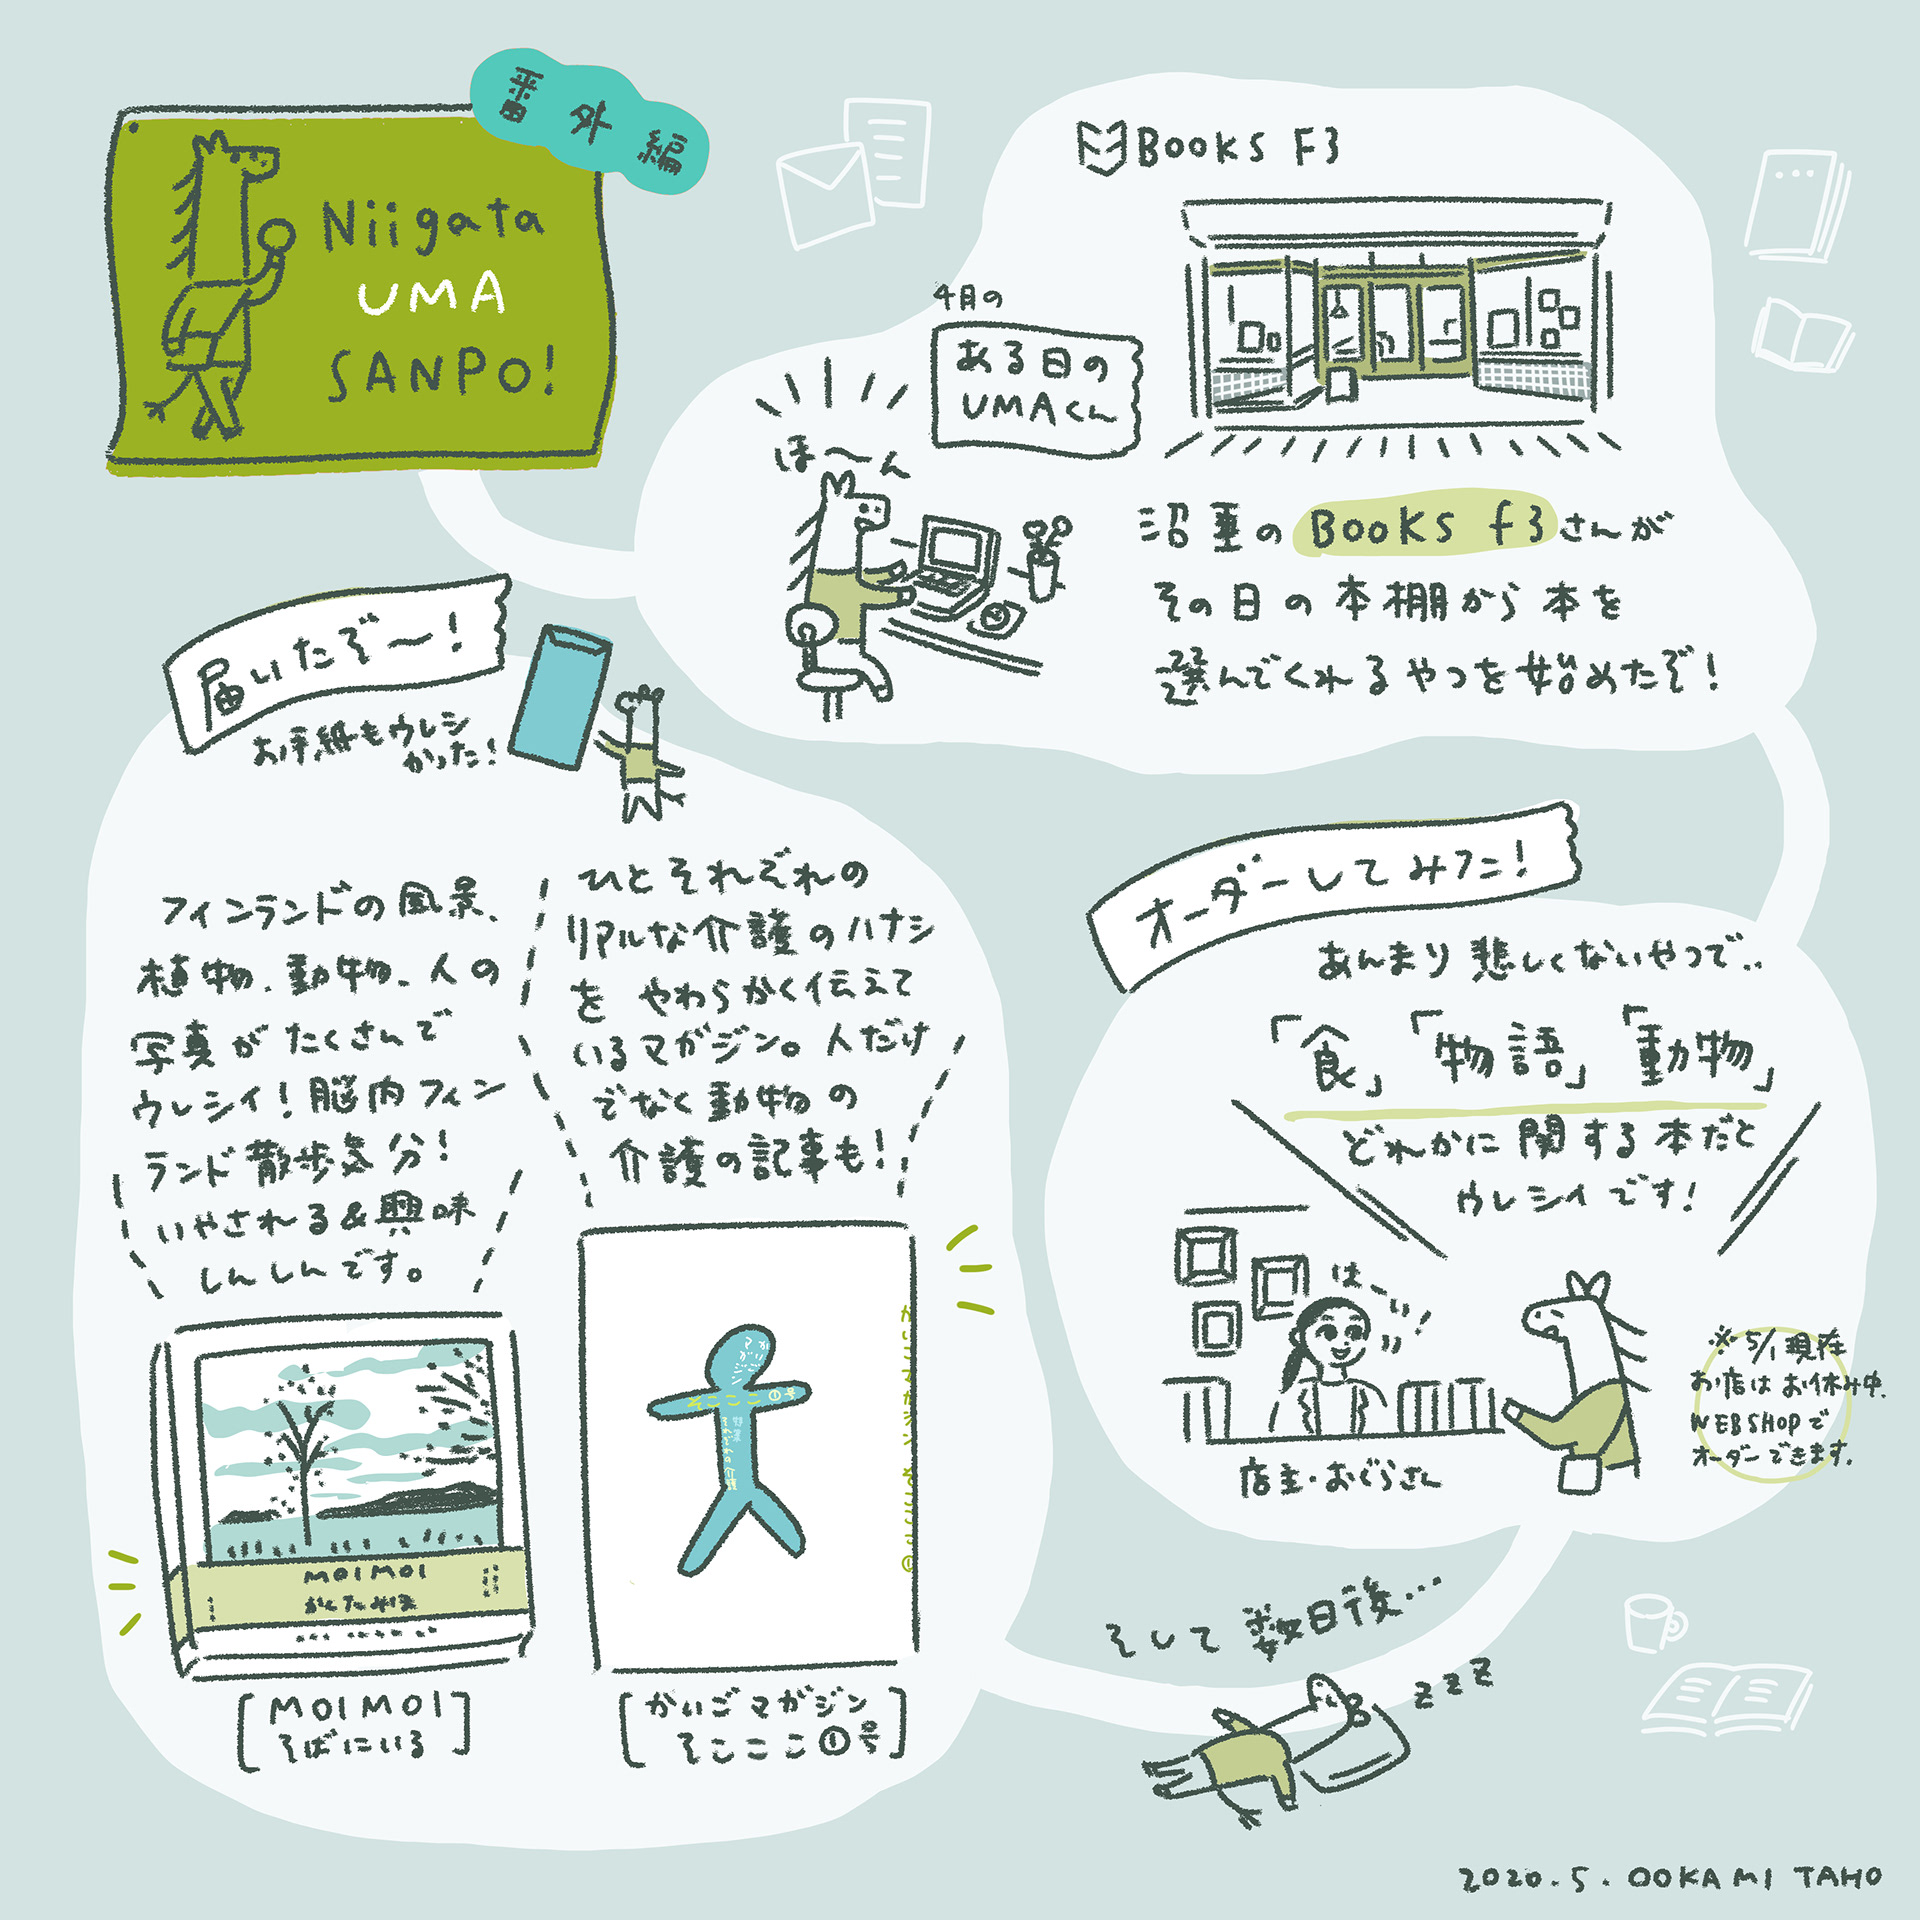 番外編
Niigata
UMA
SANPO!
BOOKS F3
4月の
ある日の
UMAくん
ほ〜ん
沼垂の BOOKS f3さんが
その日の本棚から本を
選んでくれるやつを始めたぞ!
オーダーしてみた!
あんまり悲しくないやつで..
「食」「物語」「動物」
どれかに関する本だと
ウレシイです!
はーい!
店主・おぐらさん
※5/1現在
お店はお休み中.
WEBSHOPで
オーダーできます.
そして数日後…
zzz
届いたぞ〜!
お手紙もウレシ
かった!
フィンランドの風景、
植物、動物、人の
写真がたくさんで
ウレシイ!脳内フィン
ランド散歩気分!
いやされる&興味
しんしんです。
MOIMOI
[MOIMOI
そばにいる]
ひとそれぞれの
リアルな介護のハナシ
を やわらかく伝えて
いるマガジン。人だけ
でなく動物の
介護の記事も!
そこここ①号
[かいごマガジン
そこここ①号]
2020.5.OOKAMI TAHO